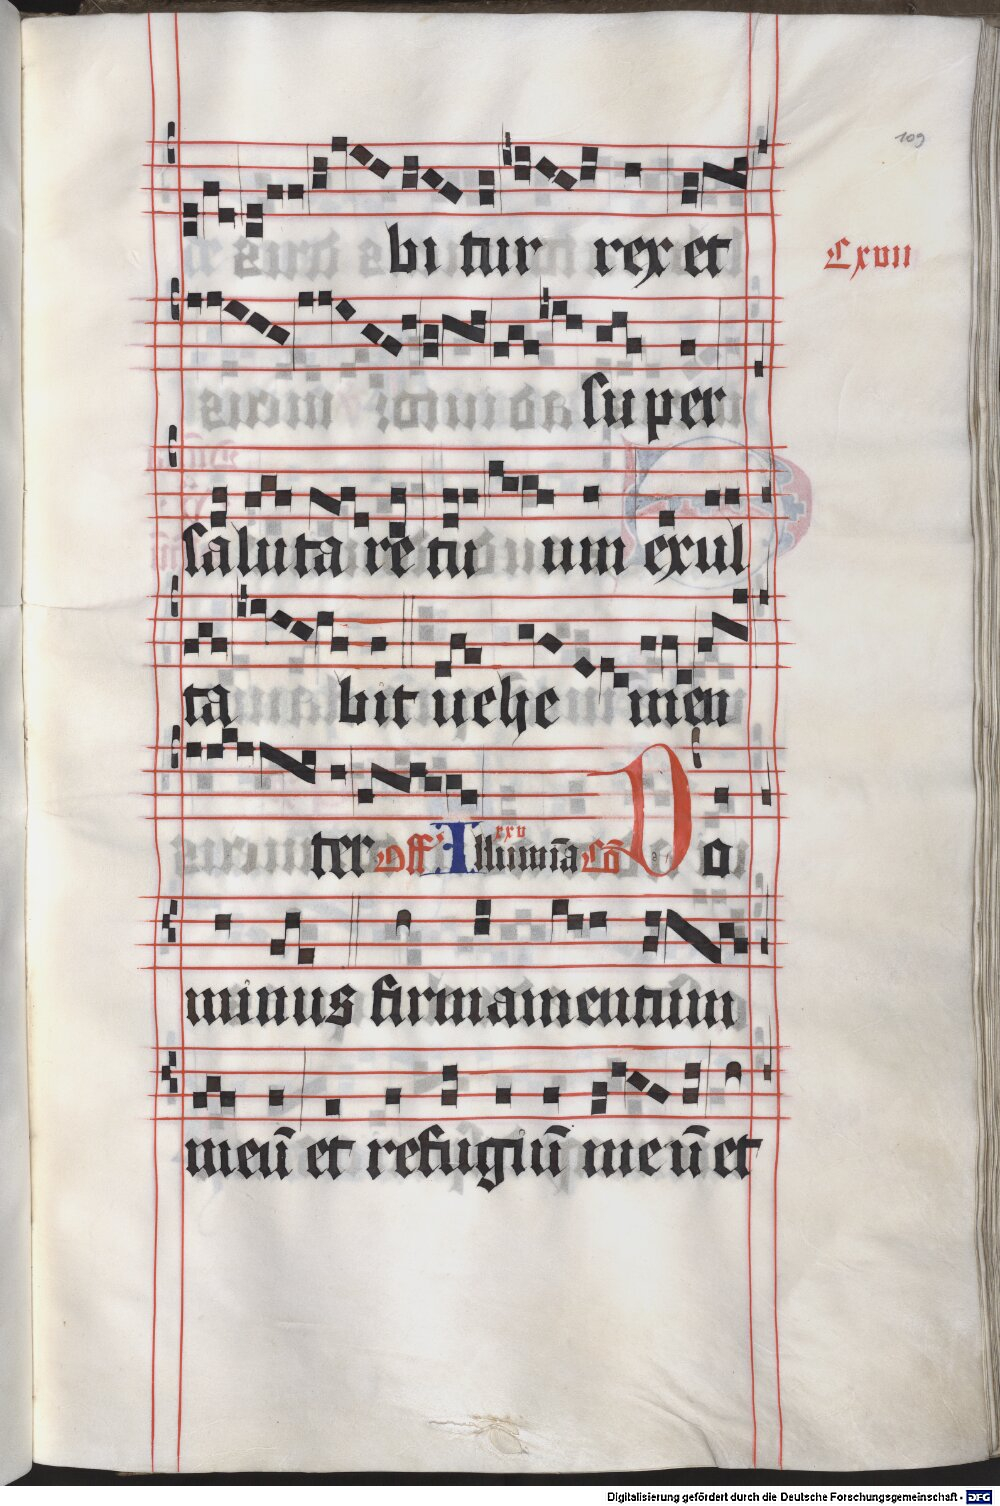 109
bi tur rex et
Cxvii
super
saluta re tu um exul
ta bit uehe men
ter Off Illumīa xxv Cō Do
minus firmamentum
meū et refugiū meū et
Digitalisierung gefördert durch die Deutsche Forschungsgemeinschaft - DFG